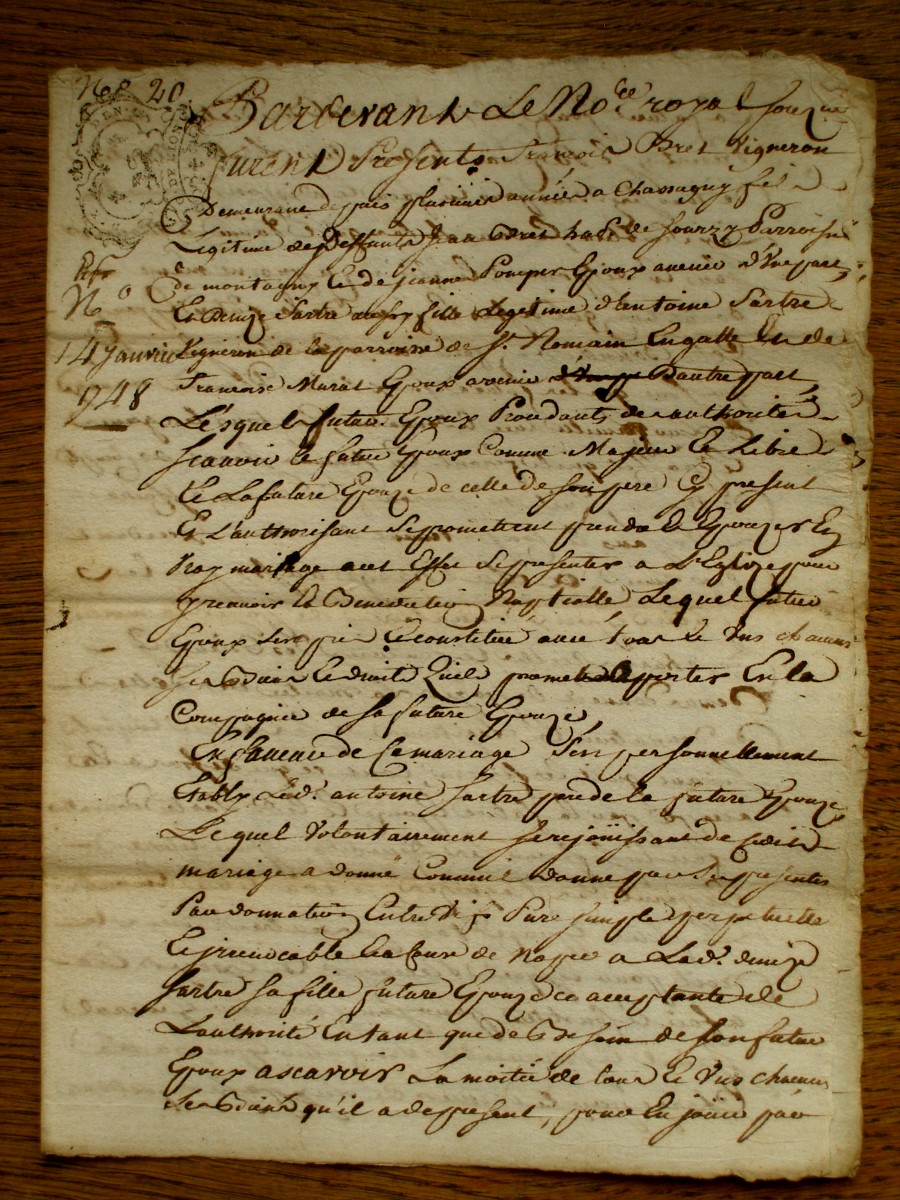 No 20
Pardevant Le No.re royal soussigné
furent Presents François Bret Vigneron
Demeurant depuis plusieurs année a Chassagny fils
Legitime de deffunts Jean Bret hab. de Sourzy Parroisse
de montagny Et de jeanne Pomper Epoux avenir d'Une part,
Et Denize Sartre aussy fille Legitime d'antoine Sartre
Vigneron de la parroisse de St. Romain Engalle Et de
Francoise Murat Epouze avenir D'autre part,
Lesquels futurs Epoux Procedants de authorité
Scauoir le futur Epoux Comme Majeur Et Libre
Et La future Epouze de celle de son pere Cy present
Et L'authorisant Se promettent prendre Et Epouzer En
Vray mariage a cet Effet Se presenter a L'Eglize pour
y recevoir la Benediction Nuptialle, Lequel futur
Epoux Constitué avec tous Et Uns chacuns
Ses Biens Et droits Quil promet apporter En la
Compagnie de Sa future Epouze,
En faveur de Ce mariage S'est personnellement
Etably Led. antoine Sartre pere de la future Epouze
Lequel Volontairement Se rejoüissant de Cedit
mariage a donné Comme il donne par Ses presentes
Par donnation Entre Vifs Pure simple perpetuelle
Et jrrevocable En faveur de Nopces a Lad. denize
Sartre Sa fille future Epouze ce acceptante de
L'authorité En tant que de Besoin de Son futur
Epoux ascavoir La moitié de tous Et Uns chacuns
Ses Biens qu'il a de present, pour En joüir par
No
14 Janvier
1748